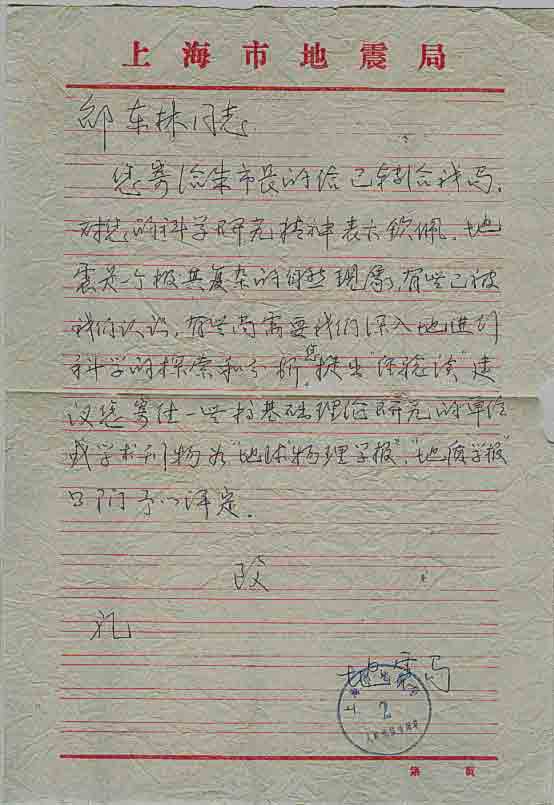 上海市地震局
邰东林同志
您寄给朱市长的信已转给我局,
对您的科学研究精神表示钦佩。地
震是一个极其复杂的自然现象,有些已被
我们认识,有些尚需要我们深入地进行
科学的探索和分析,您提出"体验谈"建
议您寄往一些搞基础理论研究的单位
或学术刊物为"地球物理学报","地质学报"
部门予以评定。
致
礼
地震局
第 页